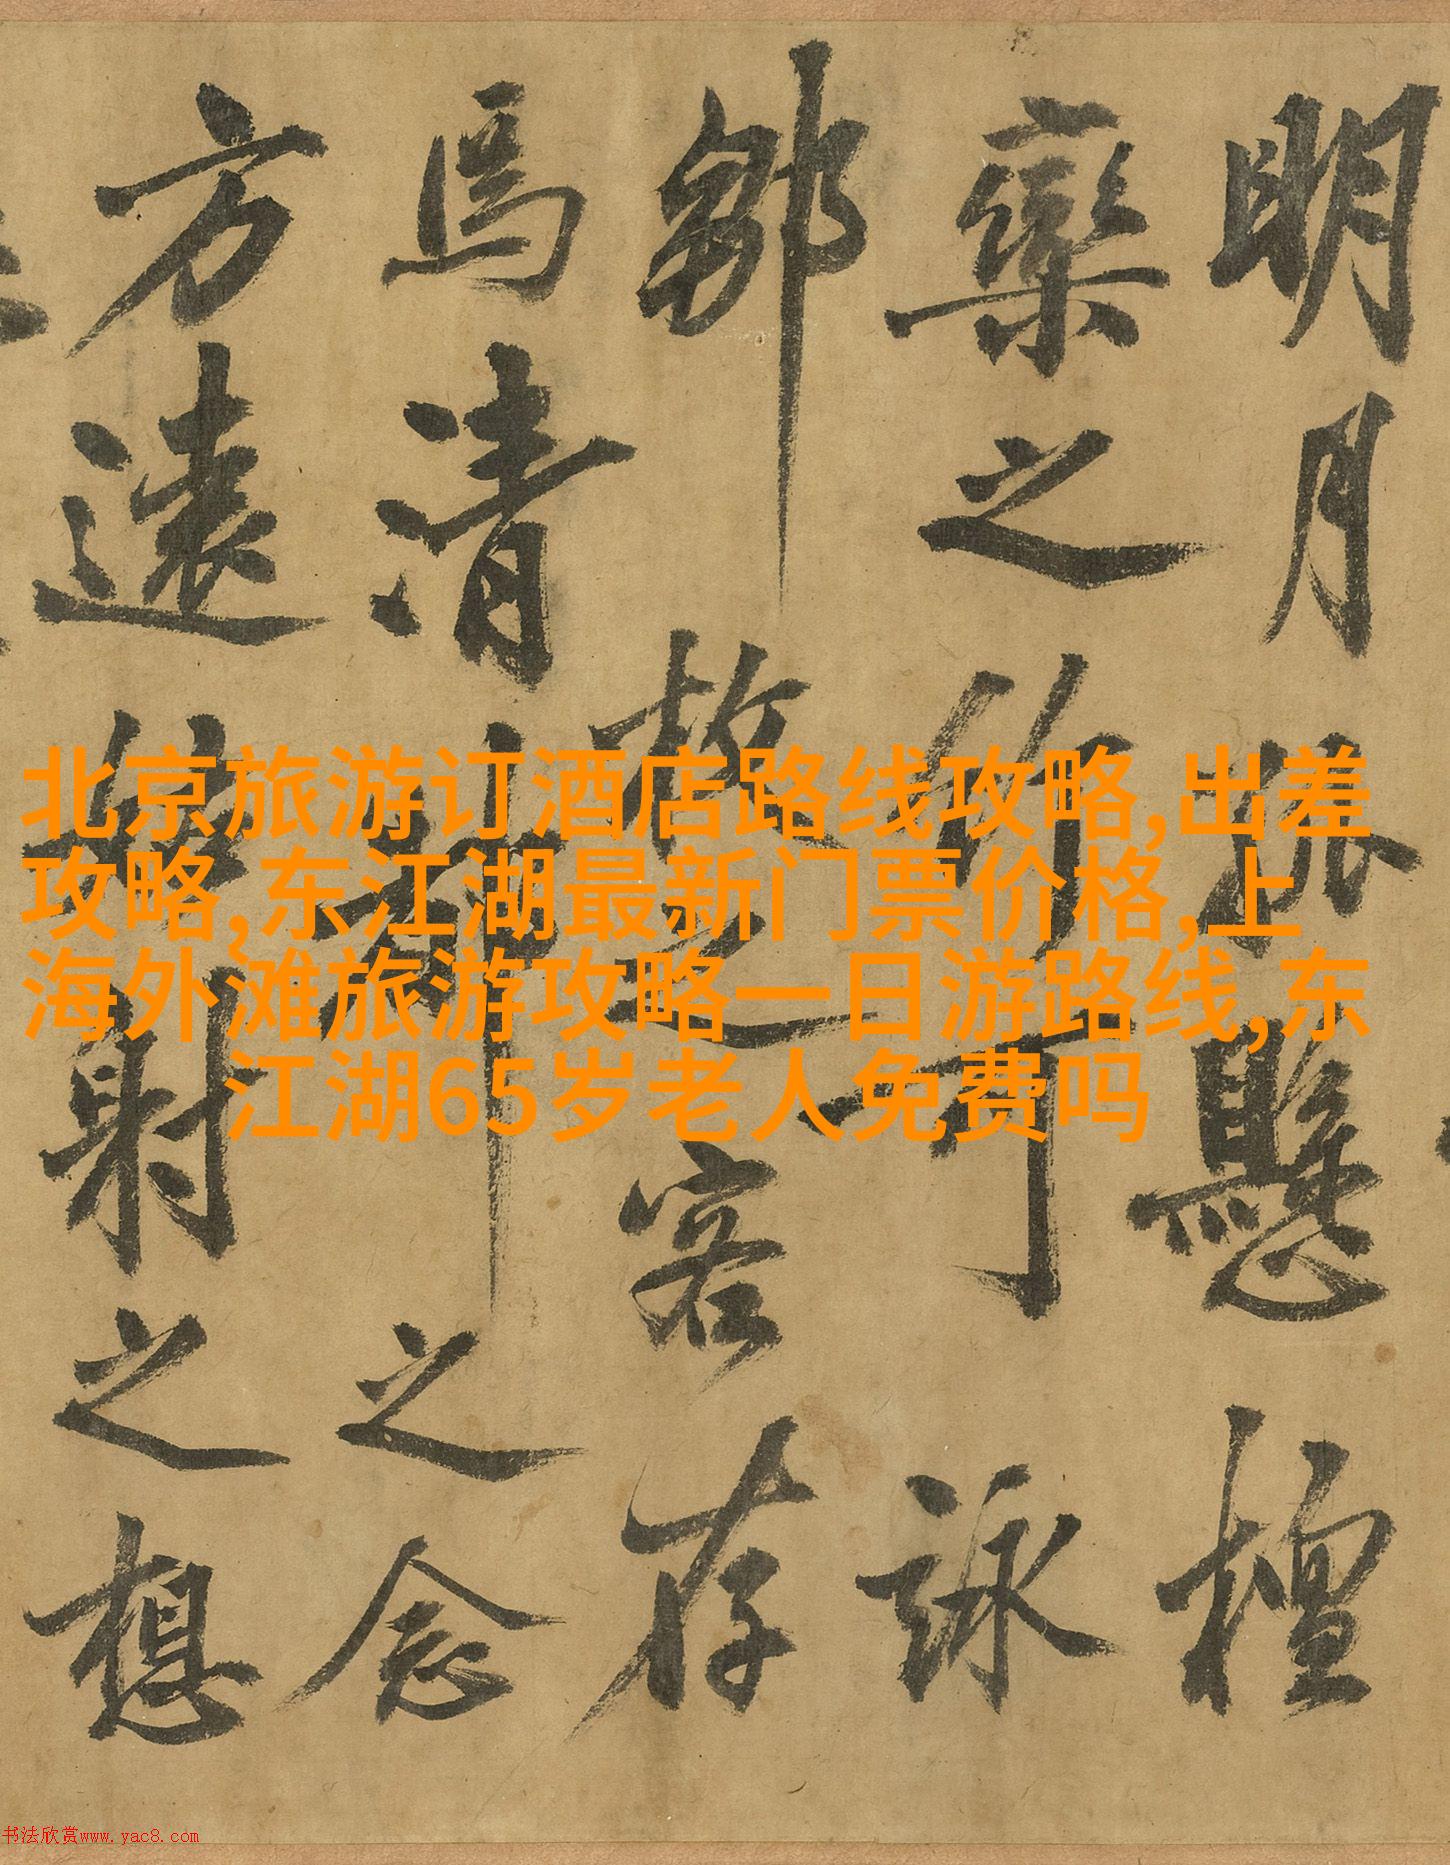 明月懸檀
欒之作可詠
鄒枚之客存
馬清之念
方遠姑射之想
北京旅游订酒店路线攻略,出差
攻略,东江湖最新门票价格,上
海外滩旅游攻略一日游路线,东
江湖65岁老人免费吗
书法欣赏www.yac8.com